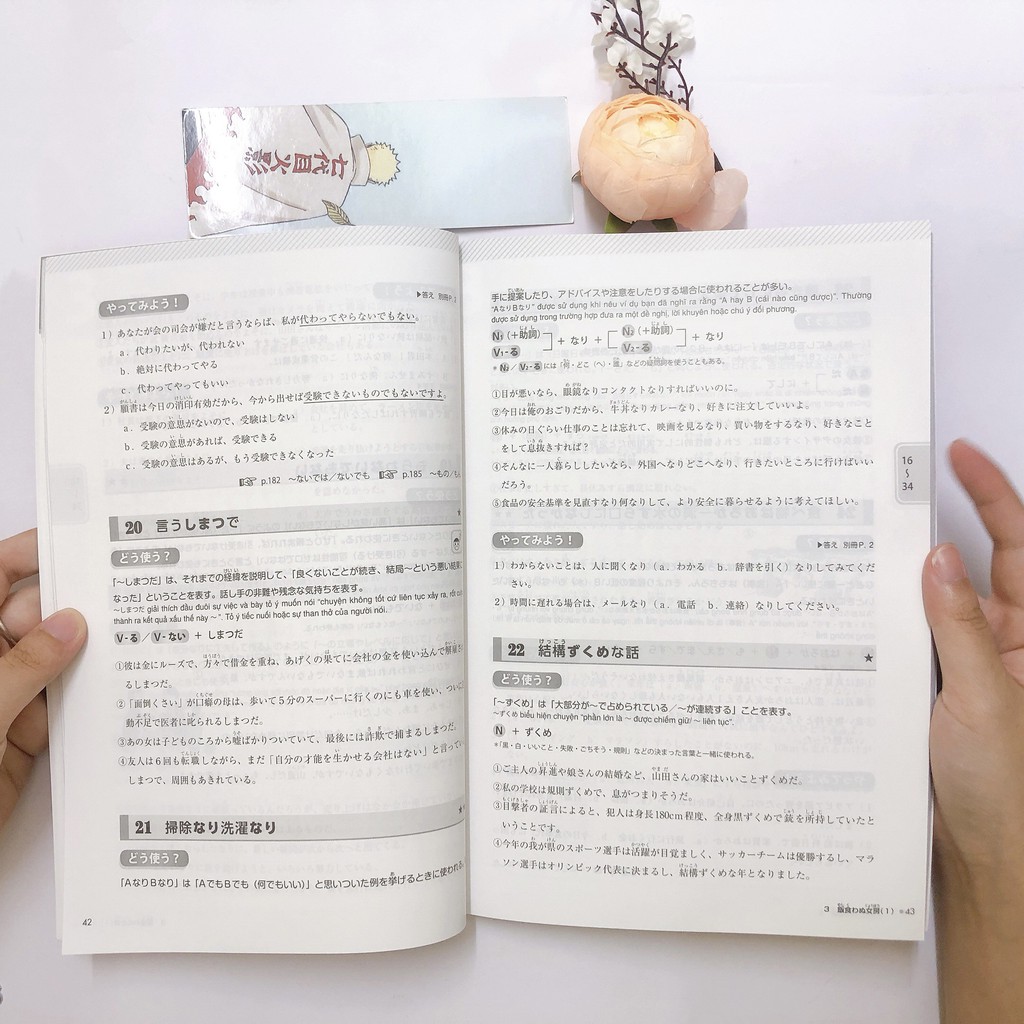 七代目火影
やってみよう!
▶答え 別冊P. 2
1）あなたが会の司会が嫌だと言うならば、私が代わってやらないでもない。
a．代わりたいが、代われない
b．絶対に代わってやる
c．代わってやってもいい
2）願書は今日の消印有効だから、今から出せば受験できないものでもないですよ。
a．受験の意思がないので、受験はしない
b．受験の意思があれば、受験できる
c．受験の意思はあるが、もう受験できなくなった
p.182 〜ないでは／ないでも p.185 〜もの／も
20 言うしまつで
どう使う？
「〜しまつだ」は、それまでの経緯を説明して、「良くないことが続き、結局〜という悪い結果に
なった」ということを表す。話し手の非難や残念な気持ちを表す。
〜しまつだ giải thích đầu đuôi sự việc và bày tỏ ý muốn nói "chuyện không tốt cứ liên tục xảy ra, rốt cuộc
thành ra kết quả xấu thế này ~". Tỏ ý tiếc nuối hoặc sự than thở của người nói.
V-る／V-ない + しまつだ
①彼は金にルーズで、方々で借金を重ね、あげくの果てに会社の金を使い込んで解雇
るしまつだ。
②「面倒くさい」が口癖の母は、歩いて5分のスーパーに行くのにも車を使い、ついに
動不足で医者に叱られるしまつだ。
③あの女は子どものころから嘘ばかりついていて、最後には詐欺で捕まるしまつだ。
④友人は6回も転職しながら、まだ「自分の才能を生かせる会社はない」と言ってい
しまつで、周囲もあきれている。
21 掃除なり洗濯なり
どう使う？
「AなりBなり」は「AでもBでも（何でもいい）」と思いついた例を挙げるときに使われる。
42
手に提案したり、アドバイスや注意をしたりする場合に使われることが多い。
"AなりBなり" được sử dụng khi nêu ví dụ bạn đã nghĩ ra rằng "A hay B (cái nào cũng được)". Thường
được sử dụng trong trường hợp đưa ra một đề nghị, lời khuyên hoặc chú ý đối phương.
N₁（+助詞） V₁-る + なり + N₂（+助詞） V₂-る + なり
＊N₂／V₂-る には「何・どこ（へ）・誰」などの疑問詞を使うこともある。
①目が悪いなら、眼鏡なりコンタクトなりすればいいのに。
②今日は俺のおごりだから、牛丼なりカレーなり、好きに注文していいよ。
③休みの日ぐらい仕事のことは忘れて、映画を見るなり、買い物をするなり、好きなこと
をして息抜きすれば？
④そんなに一人暮らししたいなら、外国へなりどこへなり、行きたいところに行けばいい
だろう。
⑤食品の安全基準を見直すなり何なりして、より安全に暮らせるように考えてほしい。
やってみよう!
▶答え 別冊P. 2
1）わからないことは、人に聞くなり（a．わかる b．辞書を引く）なりしてみてくだ
さい。
2）時間に遅れる場合は、メールなり（a．電話 b．連絡）なりしてください。
22 結構ずくめな話 ★
どう使う？
「〜ずくめ」は「大部分が〜で占められている／〜が連続する」ことを表す。
〜ずくめ biểu hiện chuyện "phần lớn là ~ được chiếm giữ/ ~ liên tục".
N + ずくめ
＊「黒・白・いいこと・失敗・ごちそう・規則」などの決まった言葉と一緒に使われる。
①ご主人の昇進や娘さんの結婚など、山田さんの家はいいことずくめだ。
②私の学校は規則ずくめで、息がつまりそうだ。
③目撃者の証言によると、犯人は身長180cm程度、全身黒ずくめで銃を所持していたと
いうことです。
④今年の我が県のスポーツ選手は活躍が目覚ましく、サッカーチームは優勝するし、マラ
ソン選手はオリンピック代表に決まるし、結構ずくめな年となりました。
3 飯食わぬ女房（1）43
16
〜
34